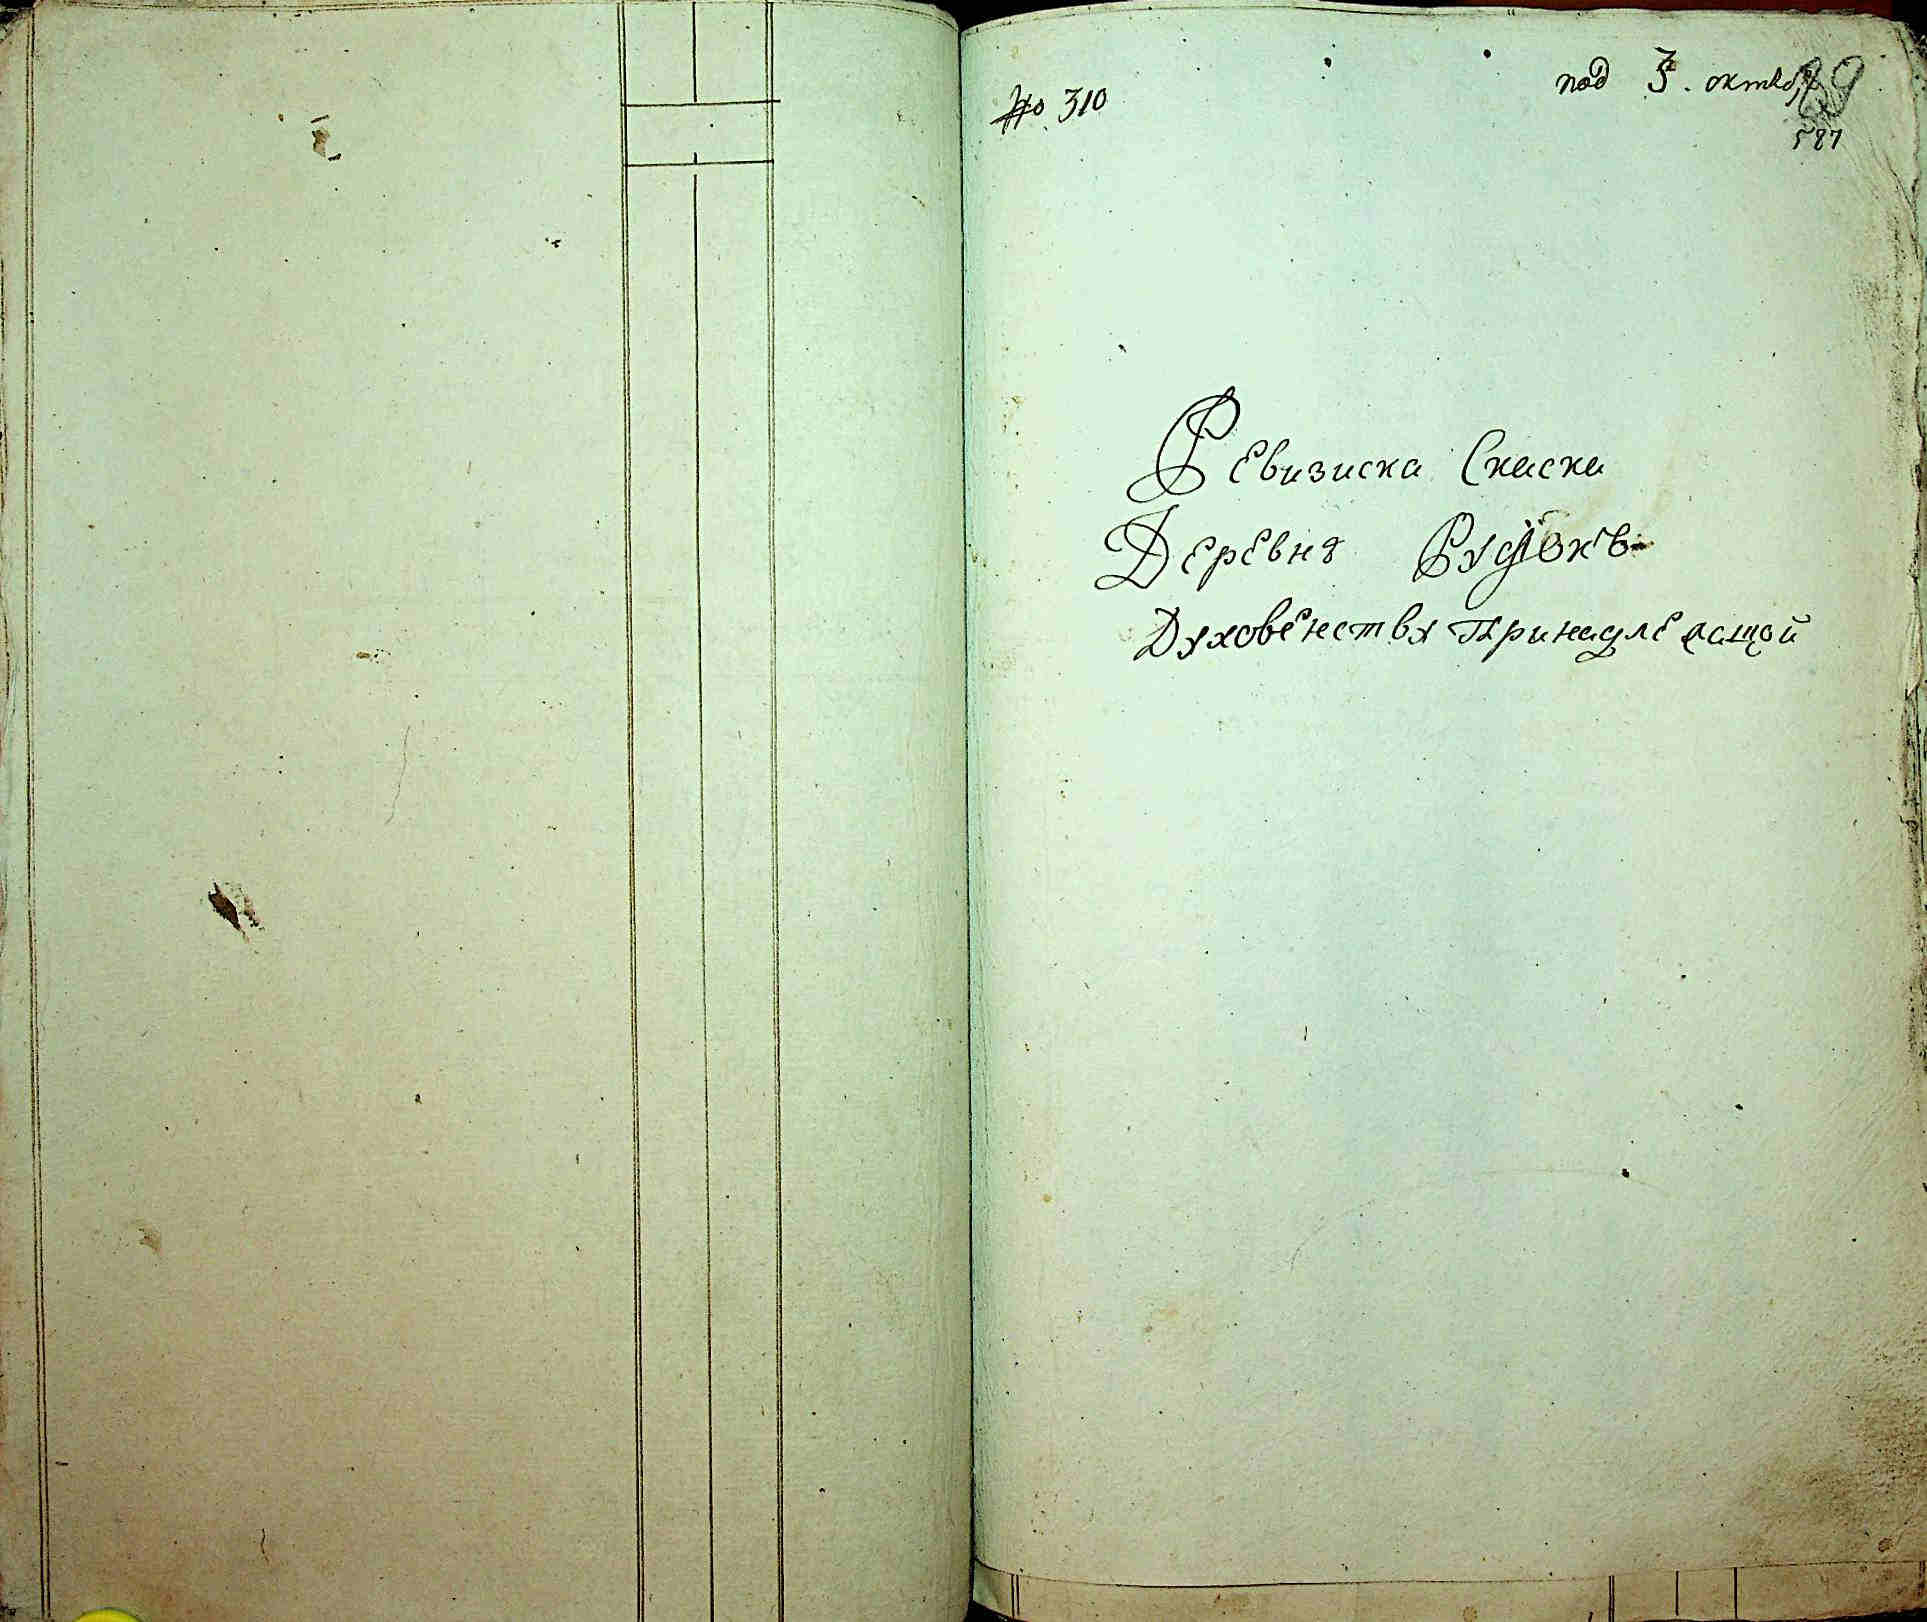 № 310
под 3. октяб
587
Ревизиска Скаска
Деревня Рудокъ
Духовенству Принадлежащой